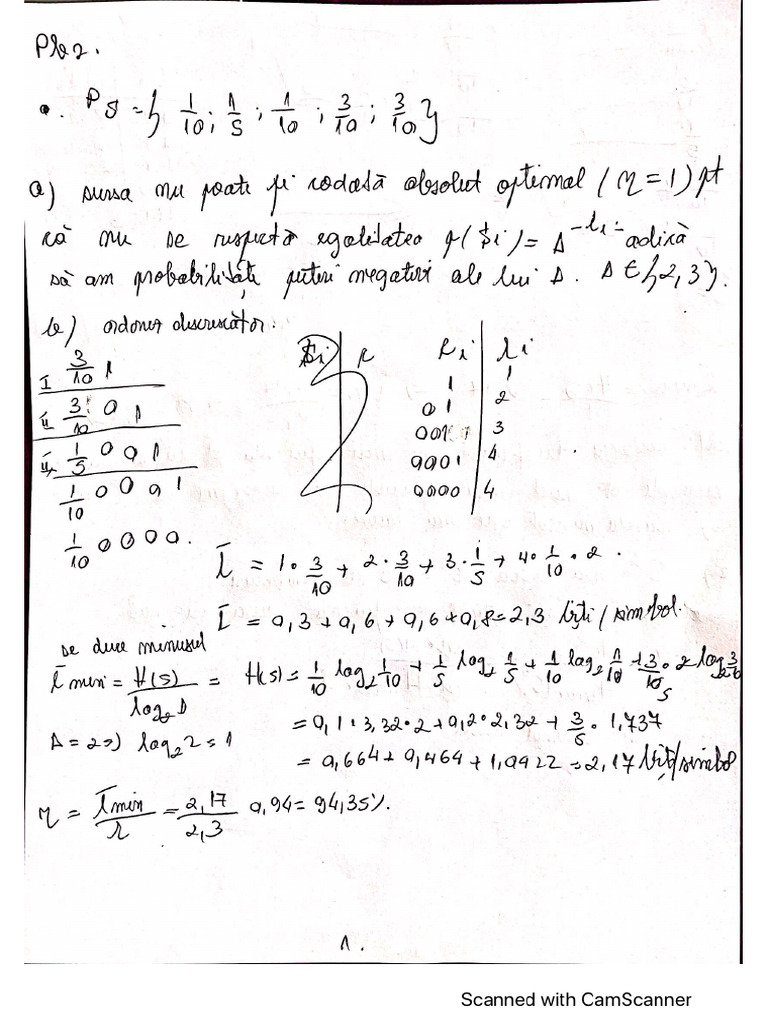 Pb2.
P_S = { 1/10; 1/5; 1/10; 3/10; 3/10 }
a) sursa nu poate fi codată absolut optimal (η = 1) pt
că nu se respectă egalitatea p(Si) = D^-li = adică
să am probabilități puteri negative ale lui D. D ∈ {2, 3}.
b) ordonez descrescător:
I 3/10 1
II 3/10 0 1
III 1/5 0 0 1
1/10 0 0 0 1
1/10 0 0 0 0.
li
1 1
01 2
001 3
0001 4
0000 4
l̄ = 1 · 3/10 + 2 · 3/10 + 3 · 1/5 + 4 · 1/10 · 2.
l̄ = 0,3 + 0,6 + 0,6 + 0,8 = 2,3 biți / simbol.
se duce minusul
l̄ min = H(S)/log2 D = H(S) = 1/10 log2 1/10 + 1/5 log2 1/5 + 1/10 log2 1/10 + 3/10 · 2 log2 3/10
= 0,1 · 3,32 · 2 + 0,2 · 2,32 + 3/5 · 1,737
D = 2 => log2 2 = 1
= 0,664 + 0,464 + 1,0422 = 2,17 biți/simbol
η = l̄ min / l̄ = 2,17/2,3 0,94 = 94,35%.
1.
Scanned with CamScanner